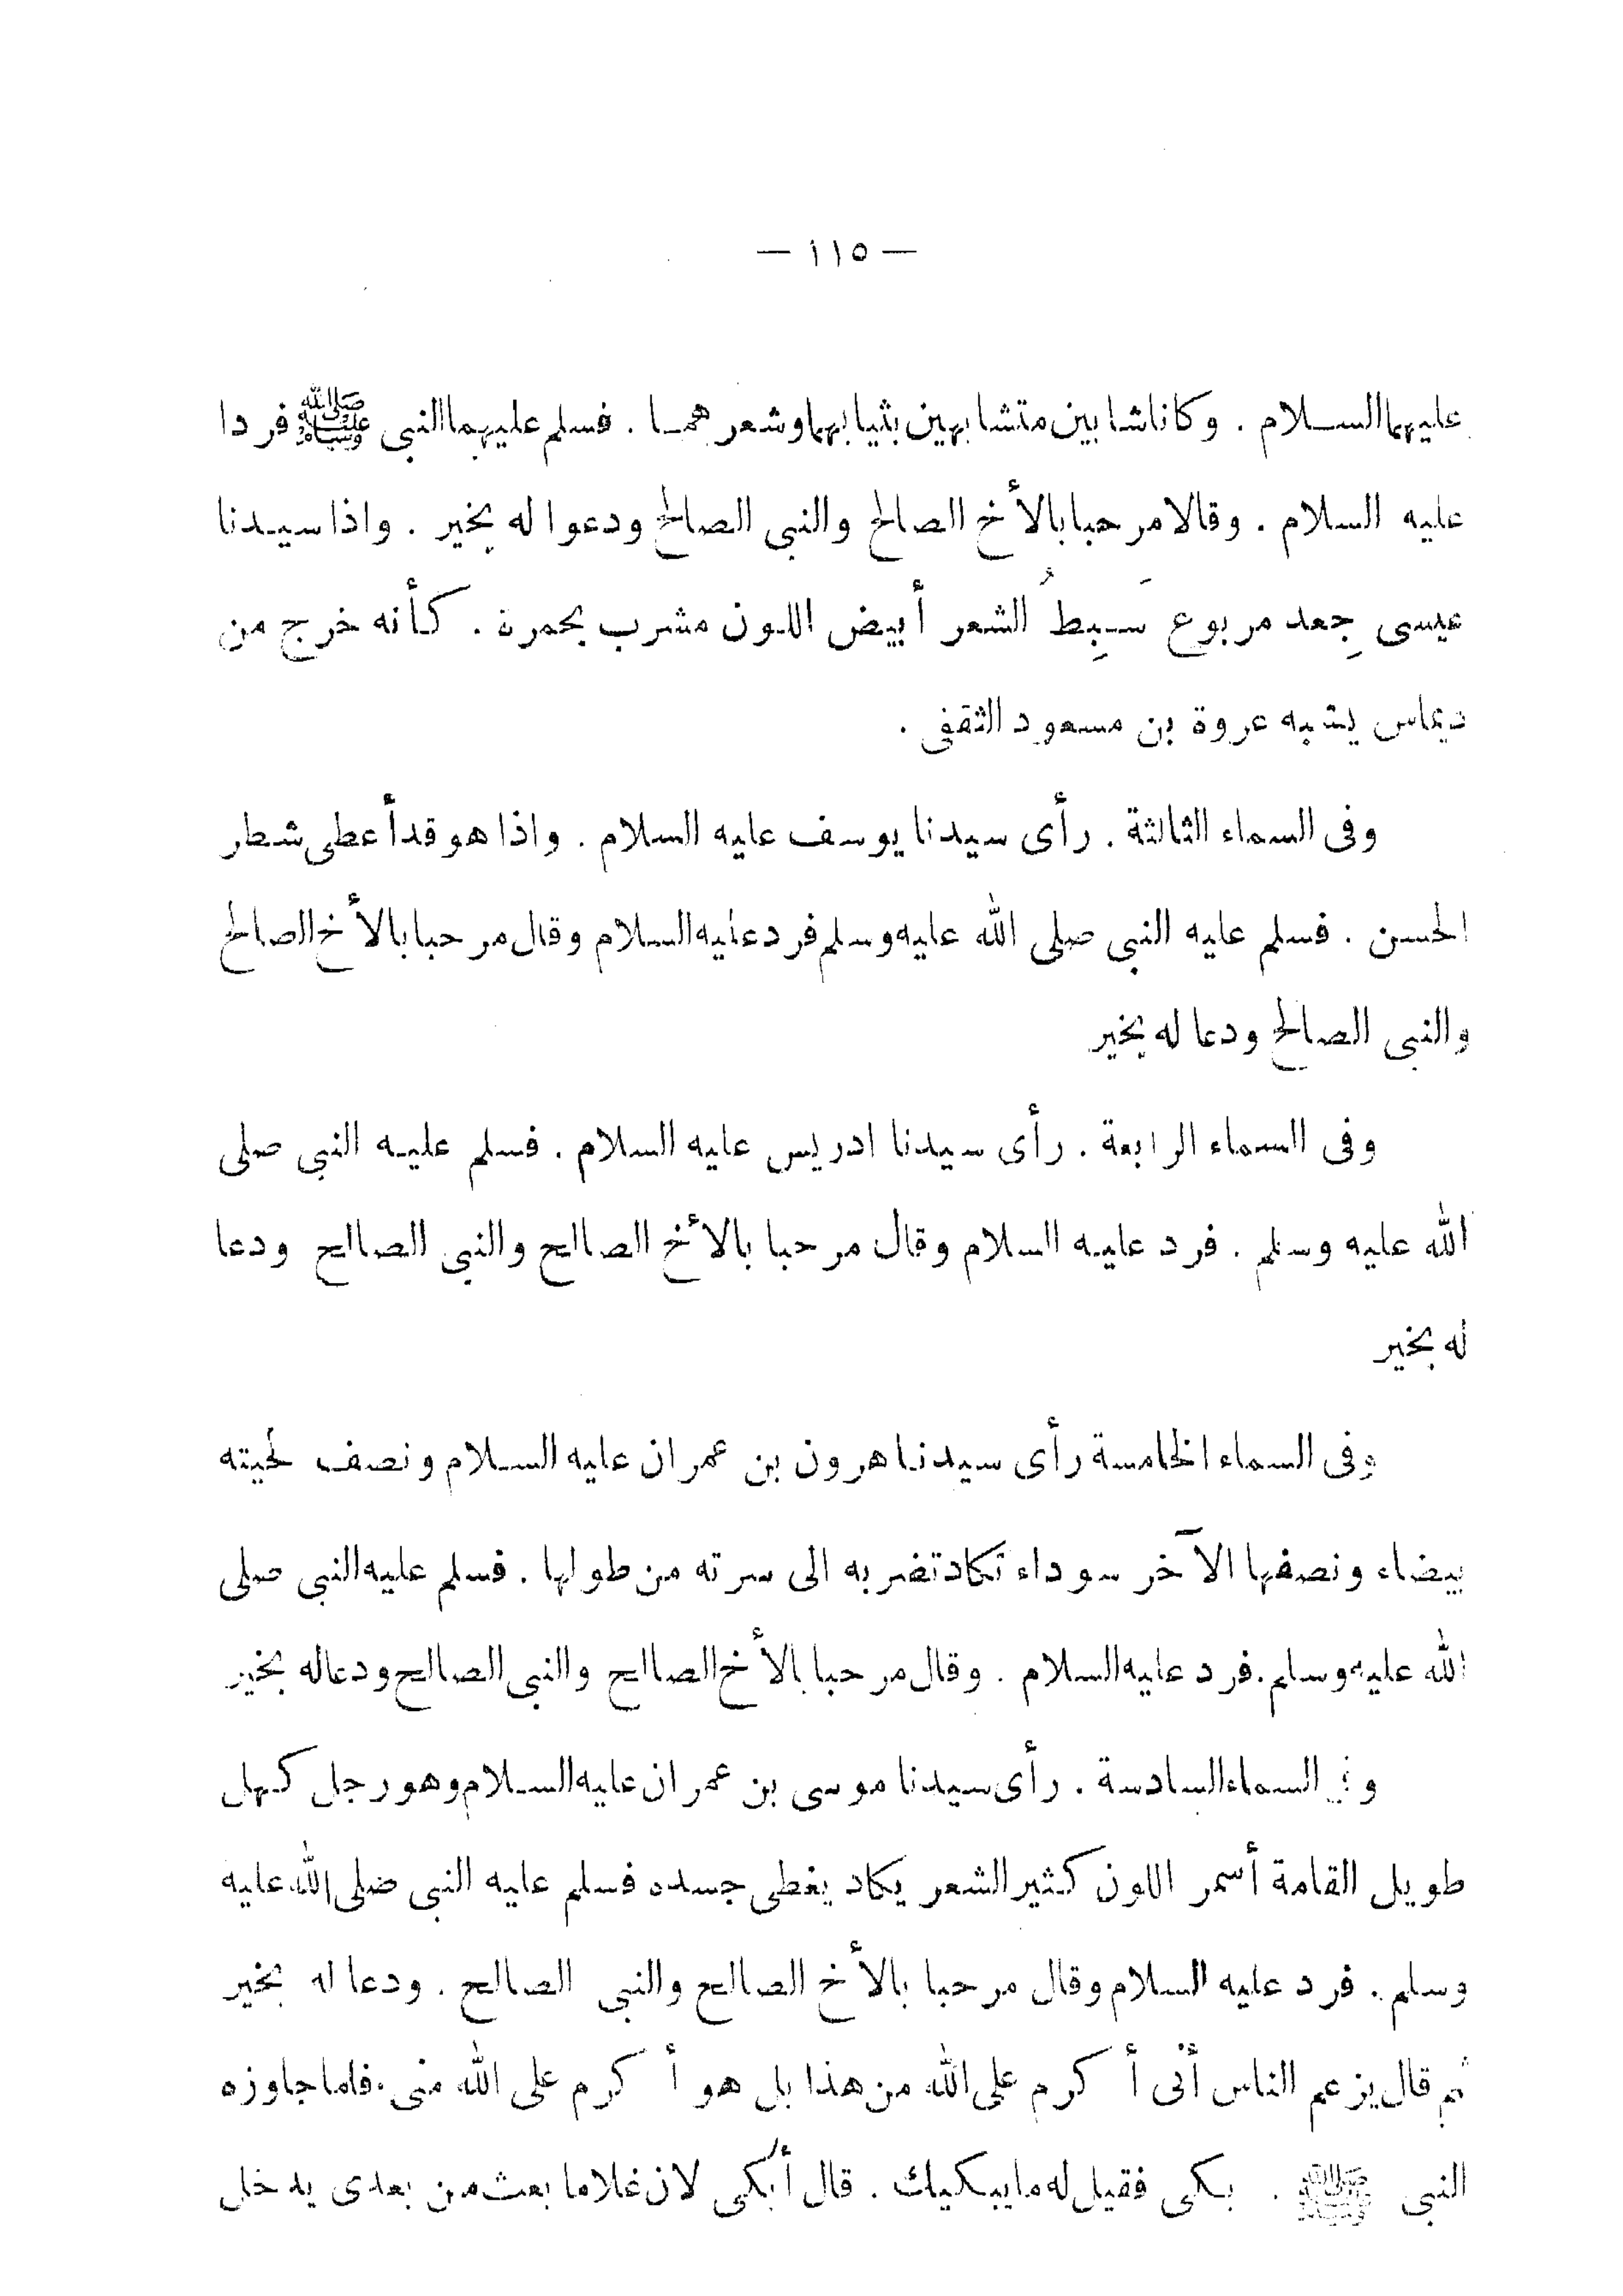 — ١١٥ —
عليهما السلام . وكانا شابين متشابهين بثيابهما وشعرهما . فسلم عليهما النبى ﷺ فردا
عليه السلام . وقالا مرحبا بالأخ الصالح والنبى الصالح ودعوا له بخير . واذا سيدنا
عيسى جِعد مربوع سَبِطُ الشعر أبيض اللون مشرب بحمرة . كأنه خرج من
ديماس يشبه عروة بن مسعود الثقفى .
وفى السماء الثالثة . رأى سيدنا يوسف عليه السلام . واذا هو قد أعطى شطر
الحسن . فسلم عليه النبى صلى الله عليه وسلم فرد عليه السلام وقال مرحبا بالأخ الصالح
والنبى الصالح ودعا له بخير
وفى السماء الرابعة . رأى سيدنا ادريس عليه السلام . فسلم عليه النبى صلى
الله عليه وسلم . فرد عليه السلام وقال مرحبا بالأخ الصالح والنبى الصالح ودعا
له بخير
وفى السماء الخامسة رأى سيدنا هرون بن عمران عليه السلام ونصف لحيته
بيضاء ونصفها الآخر سوداء تكاد تضر به الى سرته من طولها . فسلم عليه النبى صلى
الله عليه وسلم . فرد عليه السلام . وقال مرحبا بالأخ الصالح والنبى الصالح ودعا له بخير
وفى السماء السادسة . رأى سيدنا موسى بن عمران عليه السلام وهو رجل كهل
طويل القامة أسمر اللون كثير الشعر يكاد يغطى جسده فسلم عليه النبى صلى الله عليه
وسلم . فرد عليه السلام وقال مرحبا بالأخ الصالح والنبى الصالح . ودعا له بخير
ثم قال يزعم الناس أنى أكرم على الله من هذا بل هو أكرم على الله منى . فلما جاوزه
النبى ﷺ . بكى فقيل له ما يبكيك . قال أبكى لان غلاما بعث من بعدى يدخل